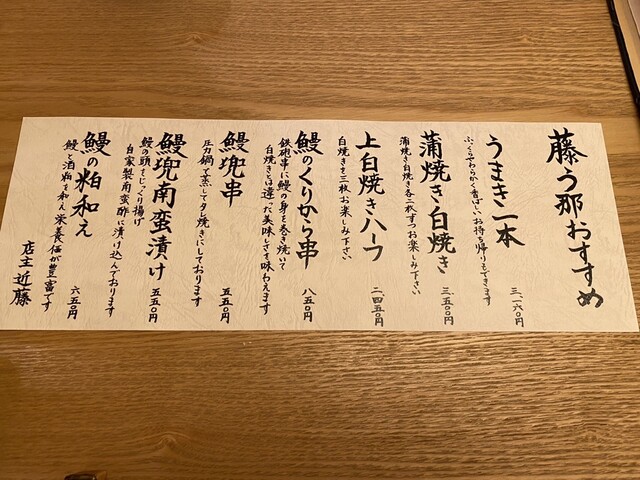 藤う那おすすめ
うまき一本
ふっくらやわらかく香ばしいお持ち帰りもできます
三、一六〇円
蒲焼き白焼き
蒲焼き白焼き各二枚ずつお楽しみ下さい
三、五〇〇円
上白焼きハーフ
白焼きを三枚お楽しみ下さい
二、四五〇円
鰻のくりから串
鉄砲串に鰻の身を巻き焼いて
白焼きとは違った美味しさを味わえます
八五〇円
鰻兜串
圧力鍋で蒸してタレ焼きにしております
五五〇円
鰻兜南蛮漬け
鰻の頭をじっくり揚げ
自家製南蛮酢に漬け込んでおります
五五〇円
鰻の粕和え
鰻と酒粕を和え栄養価が豊富です
六五〇円
店主 近藤